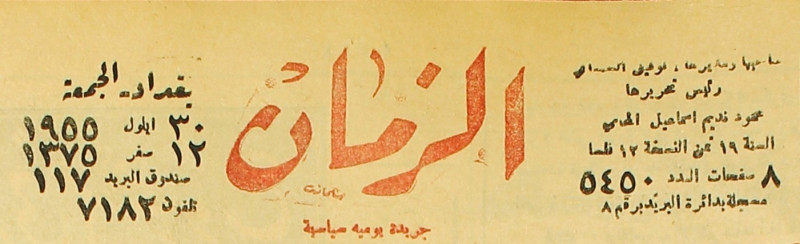 صاحبها ومديرها: توفيق السمعاني
رئيس تحريرها
محمود نديم اسماعيل المحامي
السنة ١٩ ثمن النسخة ١٢ فلسا
٨ صفحات العدد ٥٤٥٠
مسجلة بدائرة البريد برقم ٨
الزمان
جريدة يومية سياسية
بغداد - الجمعة
٣٠ ايلول ١٩٥٥
١٢ صفر ١٣٧٥
صندوق البريد ١١٧
تلفون ٧١٨٢